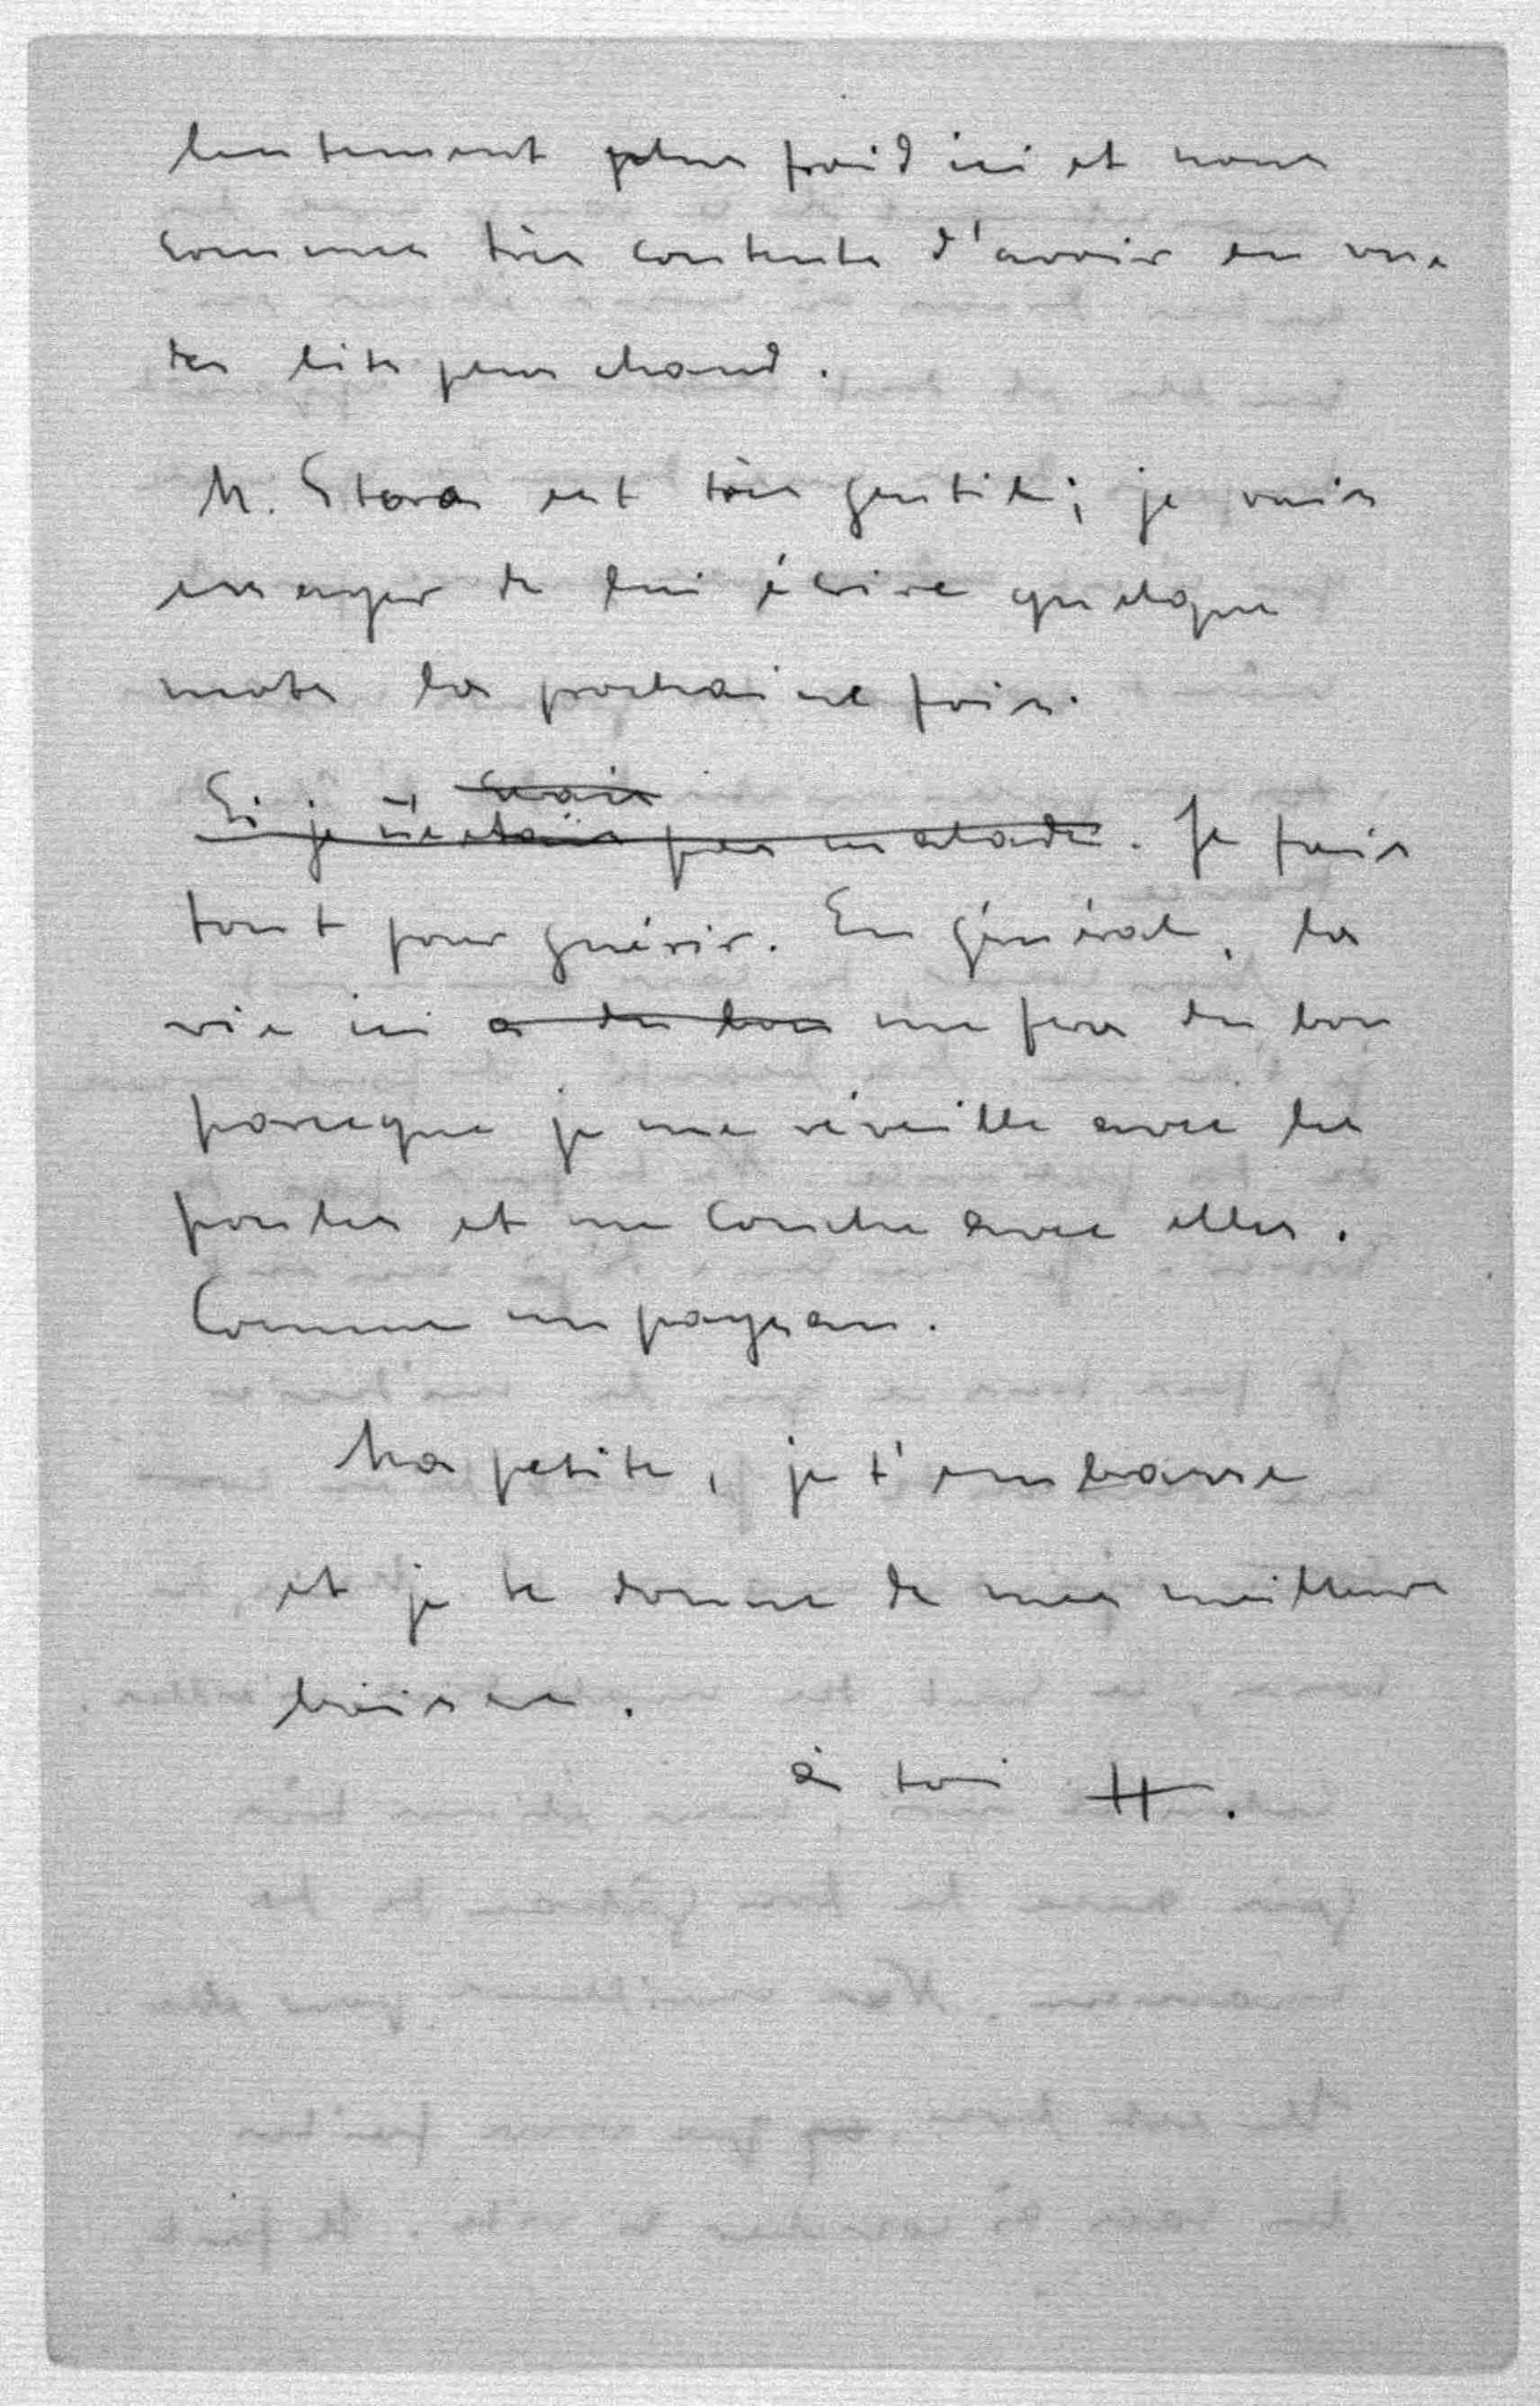 lentement plus froid ici et nous
sommes très contents d'avoir en vue
des lits plus chaud.
M. Stora est très gentil; je vais
essayer de lui écrire quelque
mots la prochaine fois.
serais
Si je n'etais pas malade. Je fais
tout pour guérir. En général, la
vie ici a du bon me fera du bon
parceque je me réveille avec les
poules et me couche avec elles.
Comme un paysan.
Ma petite, je t'embrasse
et je te donne de mes meilleurs
baisers.
à toi H.